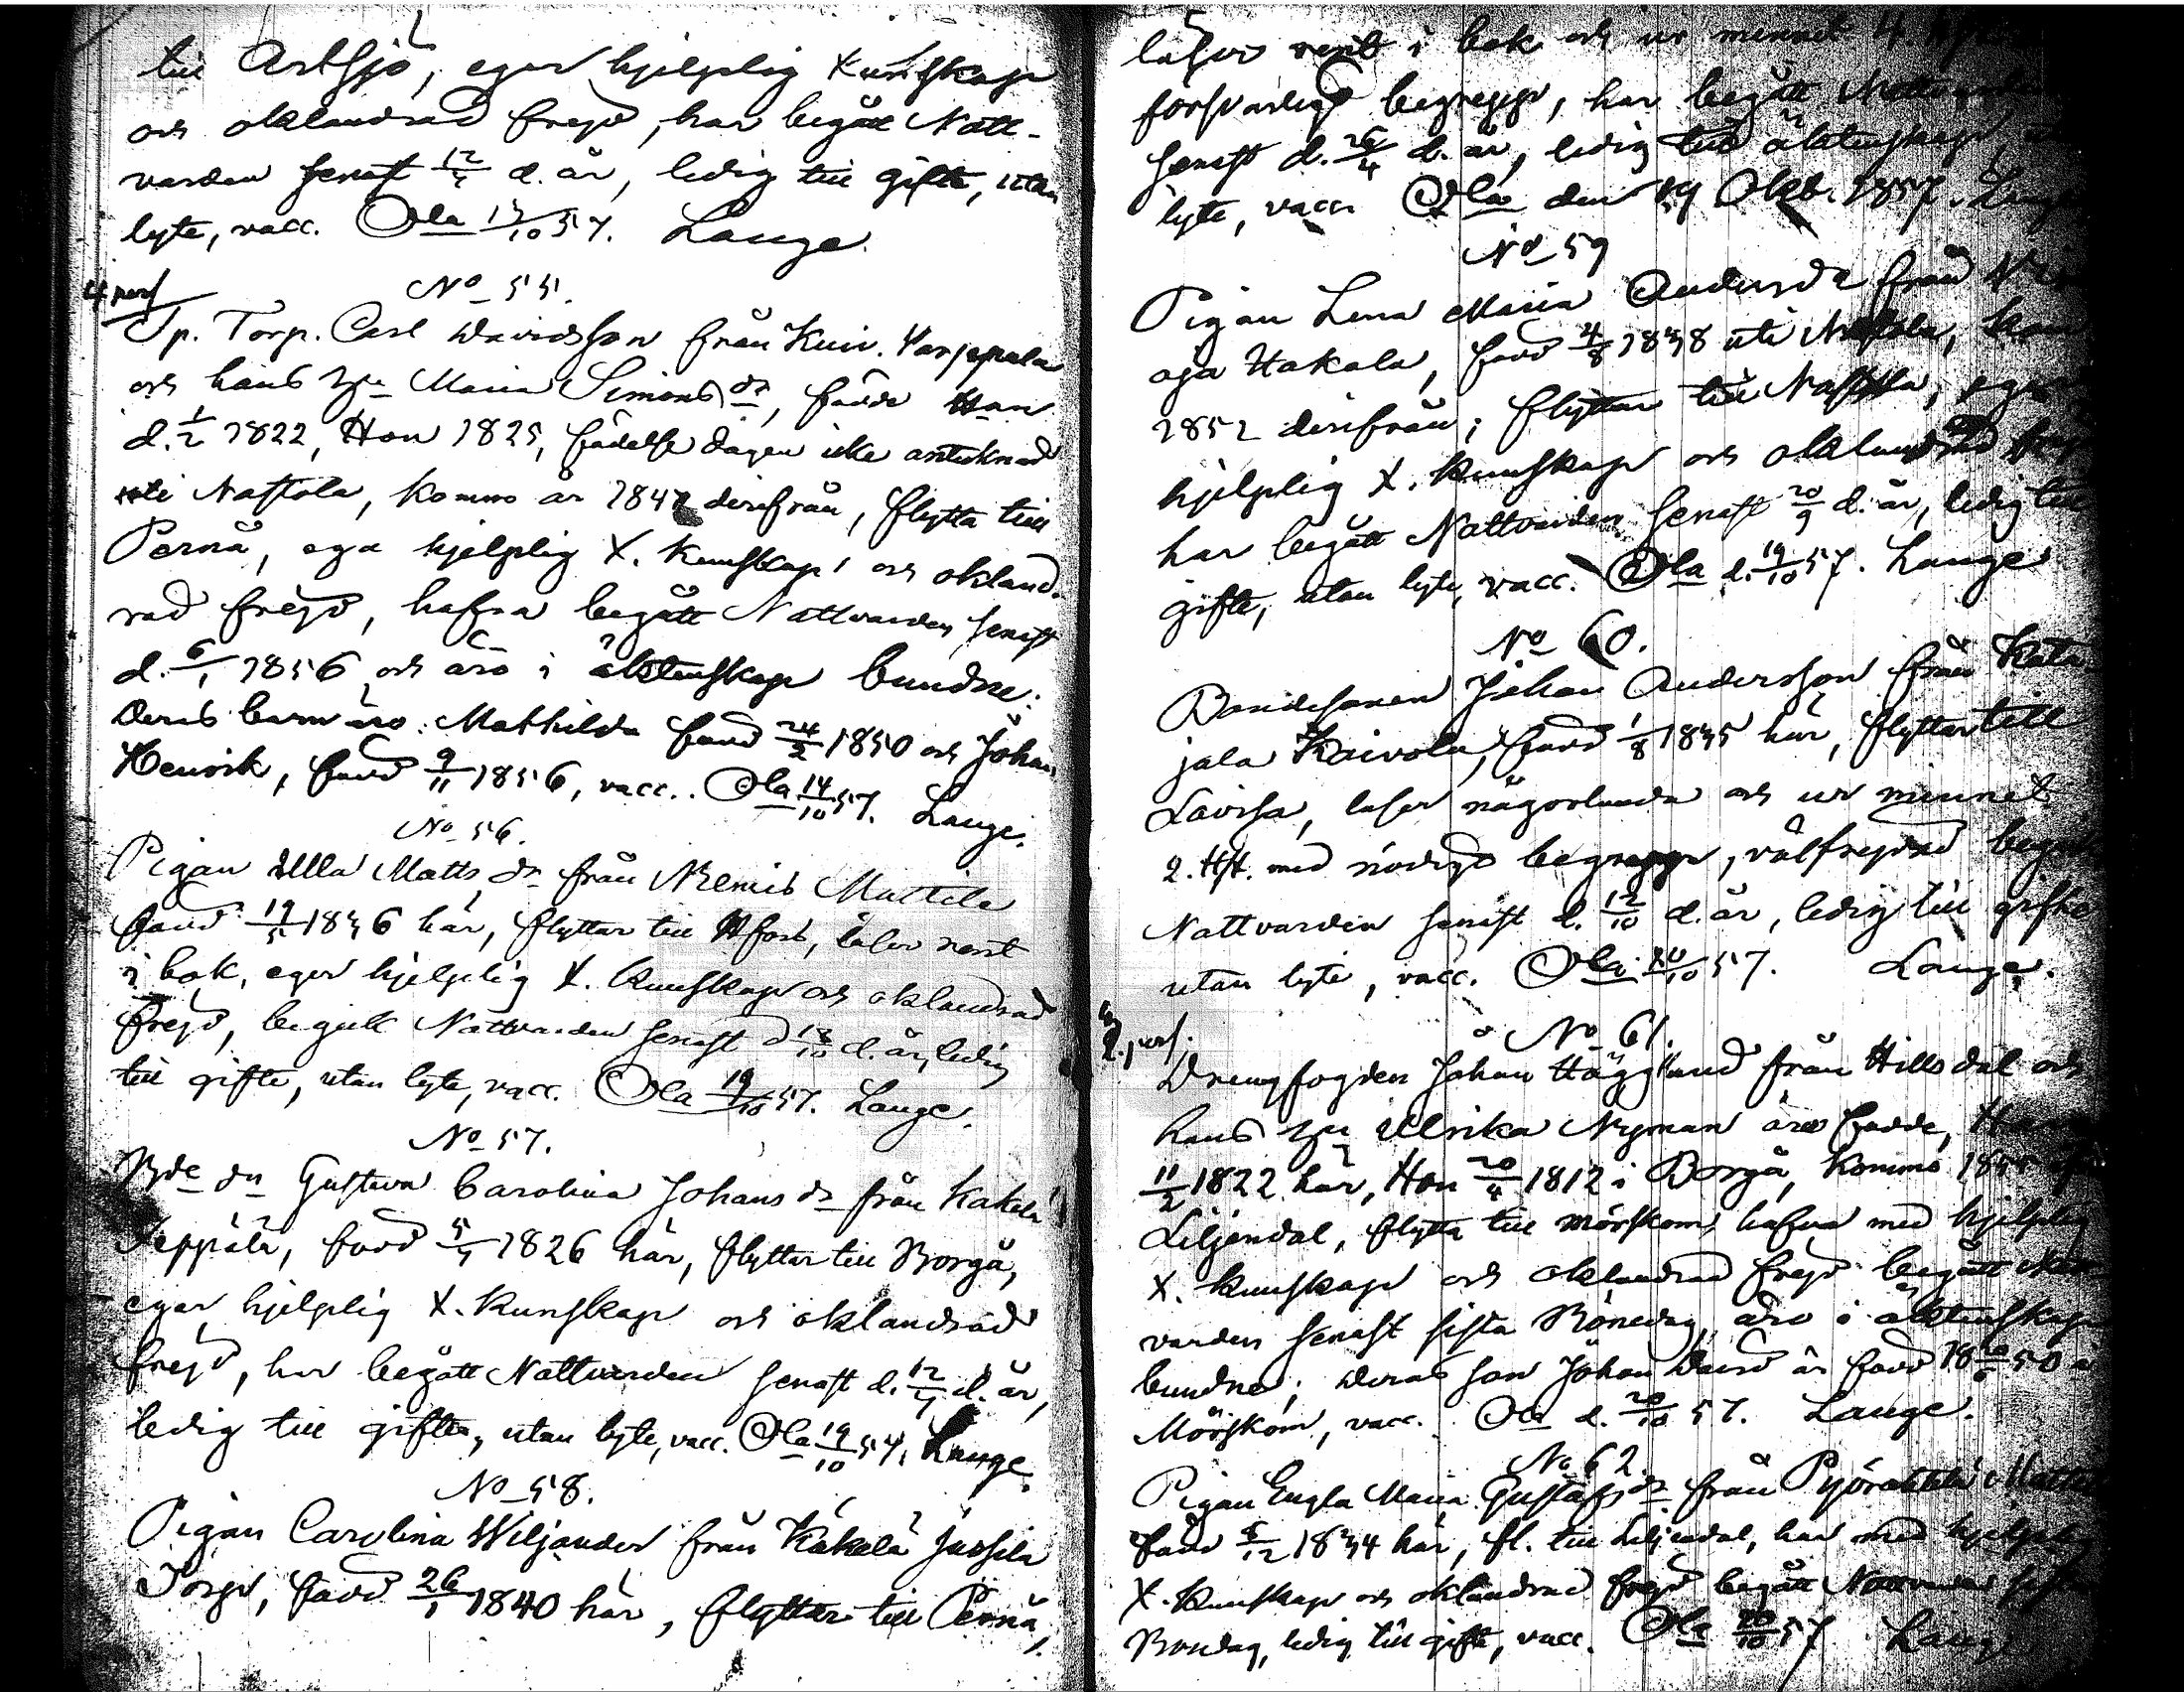 till Artsjö, eger hjelplig Kunskap
och oklandrad frejd, har begått Natt-
varden senast 12/7 d. år, ledig till gifte, utan
lyte, vacc. Ola 15/10 57. Lange.
No 55.
4 pers
Sp. Torp. Carl Davidsson från Kuiv.
och hans hu Maria Simonsdr, födde Han
d. 1/2 1822, Hon 1825, födelse dagen icke antecknad
uti Nastola, kommo år 1847 derifrån, flytta till
Pernå, ega hjelplig X. kunskap och okland-
rad frejd, hafva begått Nattvarden senast
d. 6/1 1856 och äro i äktenskap bundne.
Deras barn äro: Mathilda född 24/2 1850 och Johan
Henrik, född 9/11 1856, vacc. Ola 14/10 57. Lange.
No 56.
Pigan Ulla Mattsdr från Niemis Mattila
född 19/5 1836 här, flyttar till Hfors, läser rent
i bok, eger hjelplig X. kunskap och oklandrad
frejd, begick Nattvarden senast d 18/10 d. år, ledig
till gifte, utan lyte, vacc. Ola 19/10 57. Lange.
No 57.
Bde dn Gustava Carolina Johansdr från Kakela
Seppälä, född 5/7 1826 här, flyttar till Borgå,
eger hjelplig X. Kunskap och oklandrad
frejd, har begått Nattvarden senast d. 12/7 d. år,
ledig till gifte, utan lyte, vacc. Ola 19/10 57. Lange.
No 58.
Pigan Carolina Wiljander från Käkelä Jussila
Torp, född 26/1 1840 här, flyttar till Pernå,
läser rent i bok och ur minnet 4
försvarligt begrepp, har begått Nattvarden
senast d. 26/4 d. år, ledig till äktenskap,
lyte, vacc. Ola den 19 Oktb. 1857. Lange
No 59
Pigan Lena Maria Andersdr från
oja Hakala, född 4/8 1838 uti Nastola, kom
1852 derifrån; flyttar till Nastola, eger
hjelplig X. kunskap och oklandrad frejd
har begått Nattvarden senast 20/9 d. år, ledig till
gifte, utan lyte, vacc. Ola d. 19/10 57. Lange
No 60.
Bondesonen Johan Andersson från Kata-
jala Koivola, född 1/8 1835 här, flyttar till
Lovisa, läser någorlunda och ur minnet
2. HH. med nödigt begrepp, välfrejdad begick
Nattvarden senast d. 12/10 d. år, ledig till gifte
utan lyte, vacc. Ola 20/10 57. Lange.
No 61.
3 pers.
Drengfogden Johan Hägglund från Hillsdal och
hans hu Ulrika Nyman äro födde, Han
11/2 1822 här, Hon 20/4 1812 i Borgå, kommo
Liljendal, flytta till Mörskom, hafva med hjelplig
X. kunskap och oklandrad frejd begått Natt-
varden senast sista Bönedag, äro i äktenskap
bundne; deras son Johan David är född 18 50 i
Mörskom, vacc. Ola d. 20/10 57. Lange.
No 62.
Pigan Engla Maria Gustafsdr från Pyörähtälä Mattila
född 5/12 1834 här, fl. till Liljendal, har med hjelplig
X. kunskap och oklandrad frejd begått Nattvarden
Böndag, ledig till gifte, vacc. Ola 20/10 57 Lange